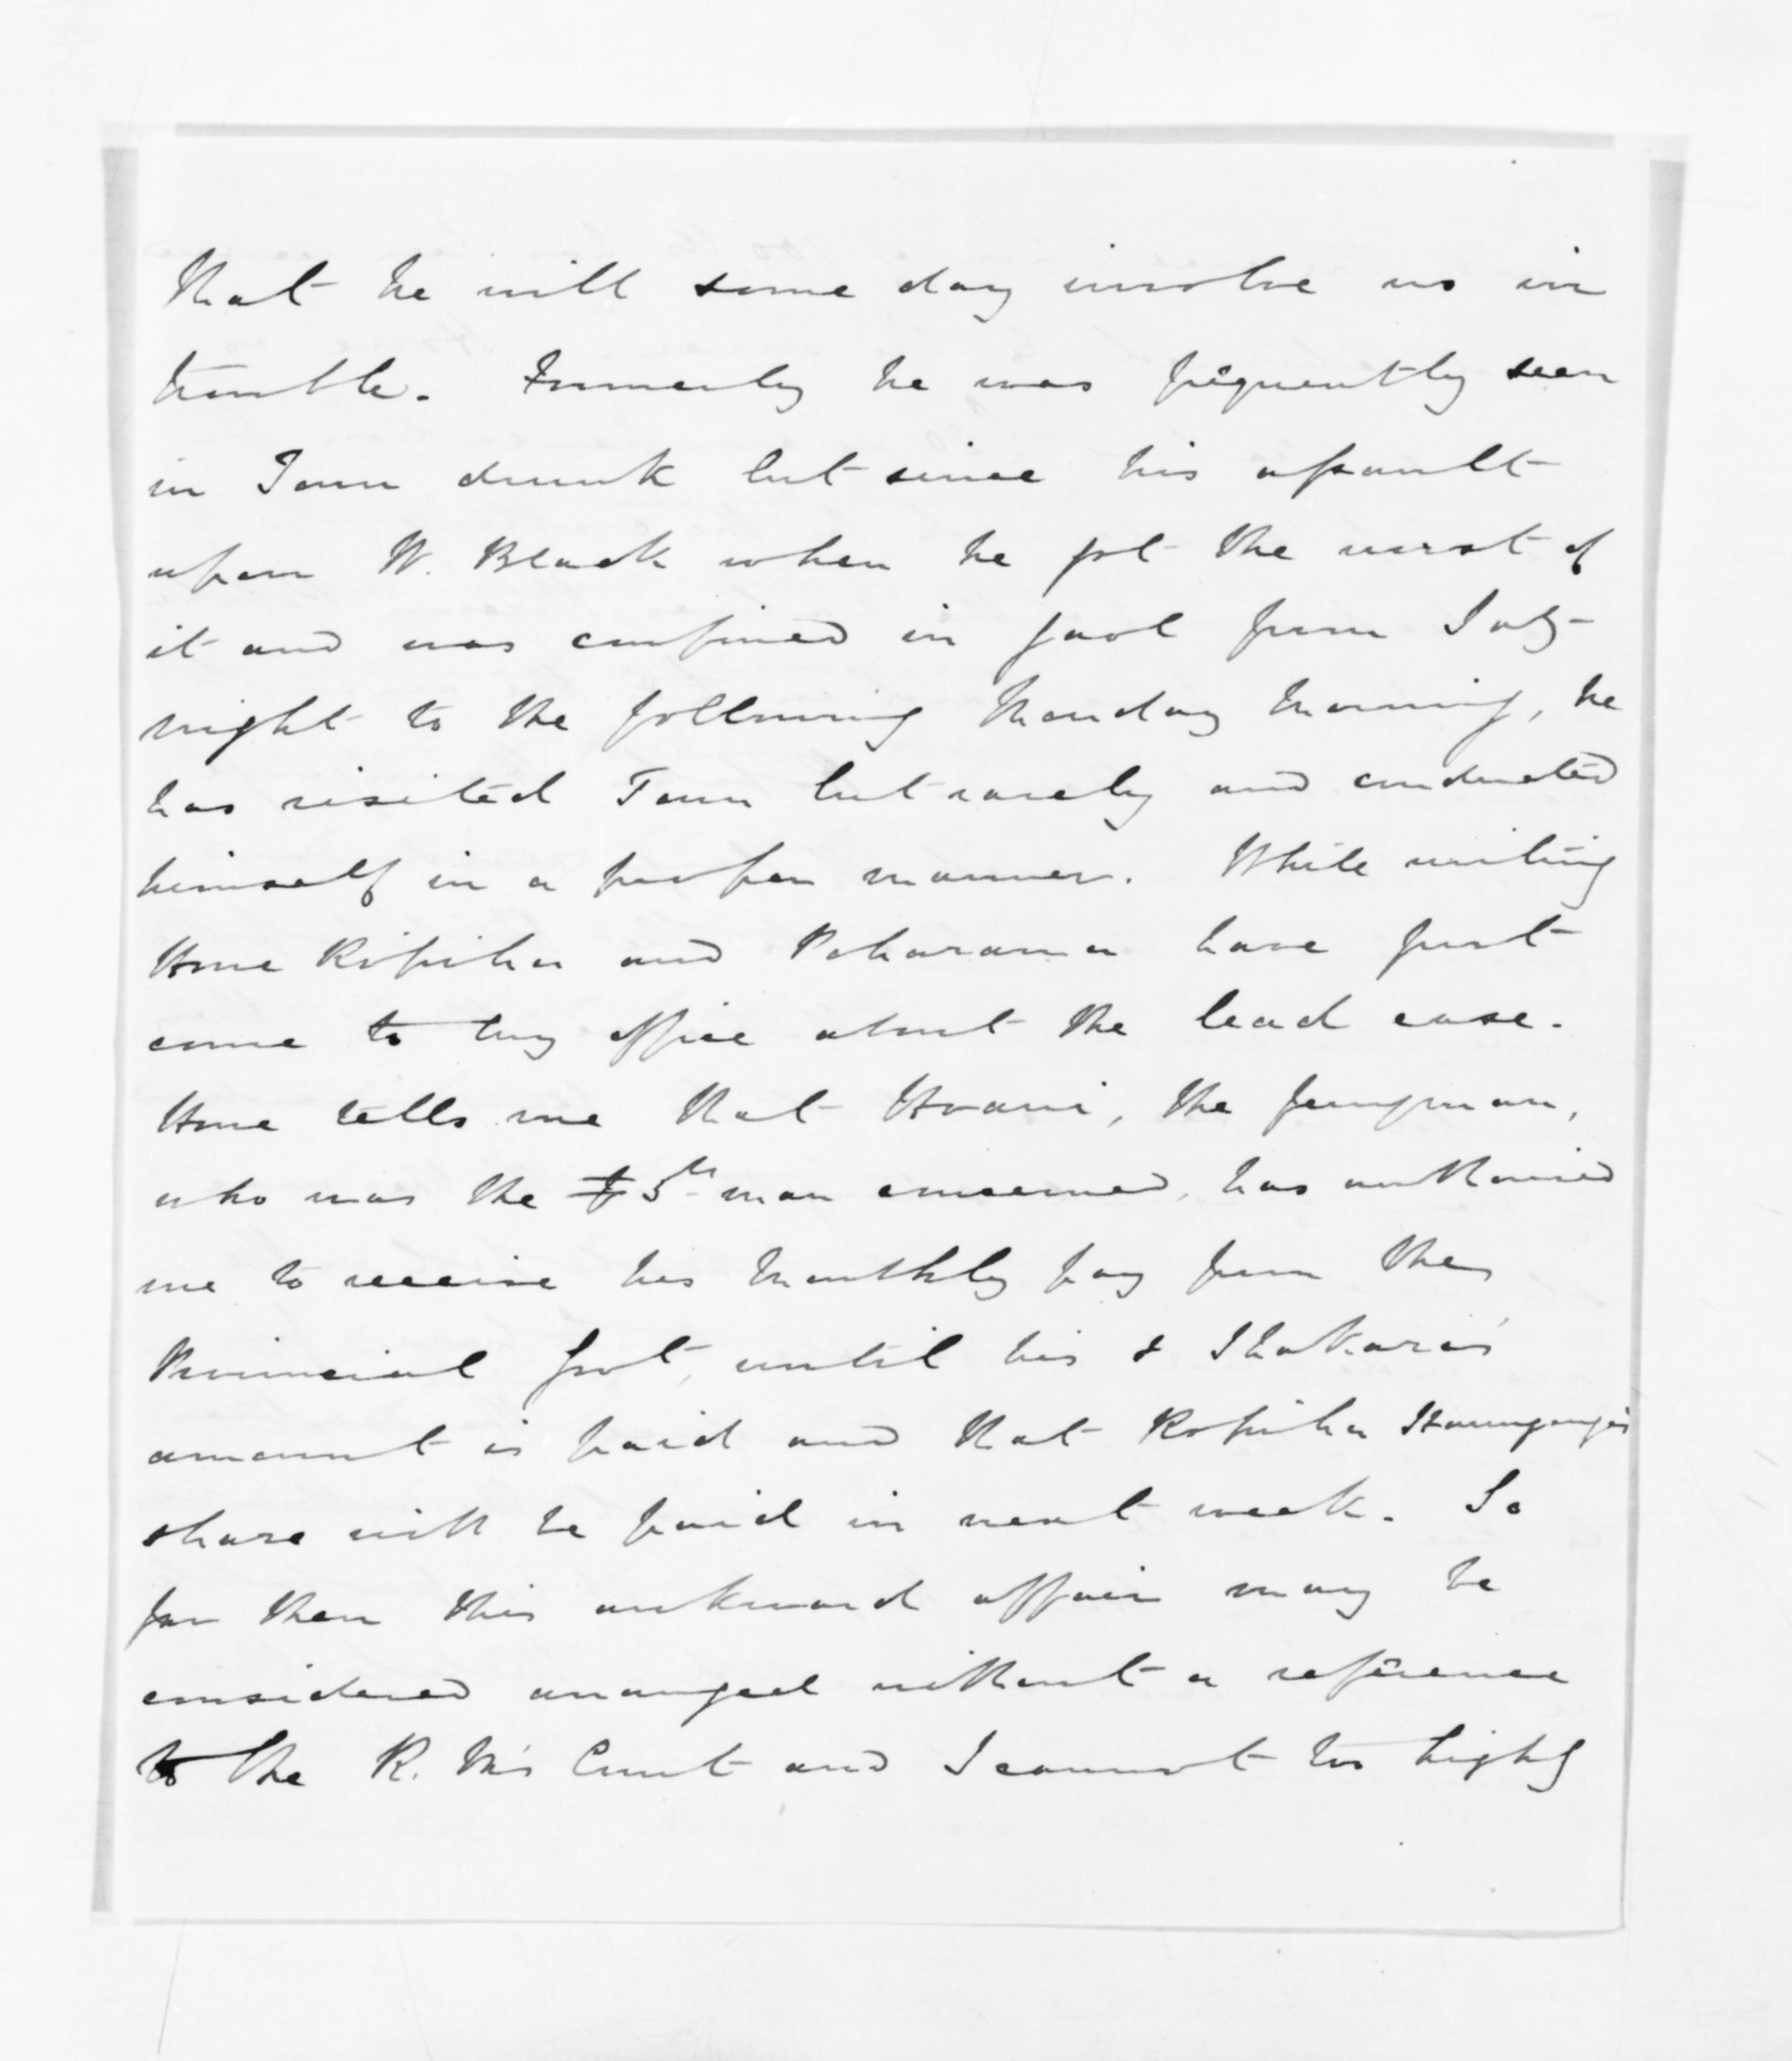 that he will some day involve us in
trouble. Formerly he was frequently seen
in Town drunk but since his assault
upon W. Black when he got the worst of
it and was confined in gaol from Saty
night to the following Monday morning, he
has visited Town but rarely and conducted
himself in a proper manner. While writing
Hone Ropiha and Paharama have just
come to my office about the lead case.
Hone tells me that Hoani, the ferryman,
who was the 5th man concerned, has authorised
me to receive his monthly pay from the
Provincial Govt, until his & Ihakara's
amount is paid and that Ropiha
share will be paid in next week. So
far then this awkward affair may be
considered arranged without a reference
to the R. M's Court and I cannot too highly